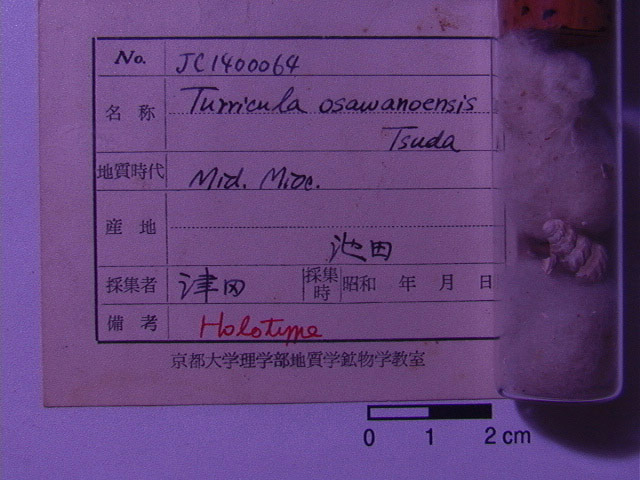 No. JC1400064
名称 Turricula osawanoensis
Tsuda
地質時代 Mid. Mioc.
産地 池田
採集者 津田 採集時 昭和 年 月 日
備考 Holotype
京都大学理学部地質学鉱物学教室
0 1 2 cm